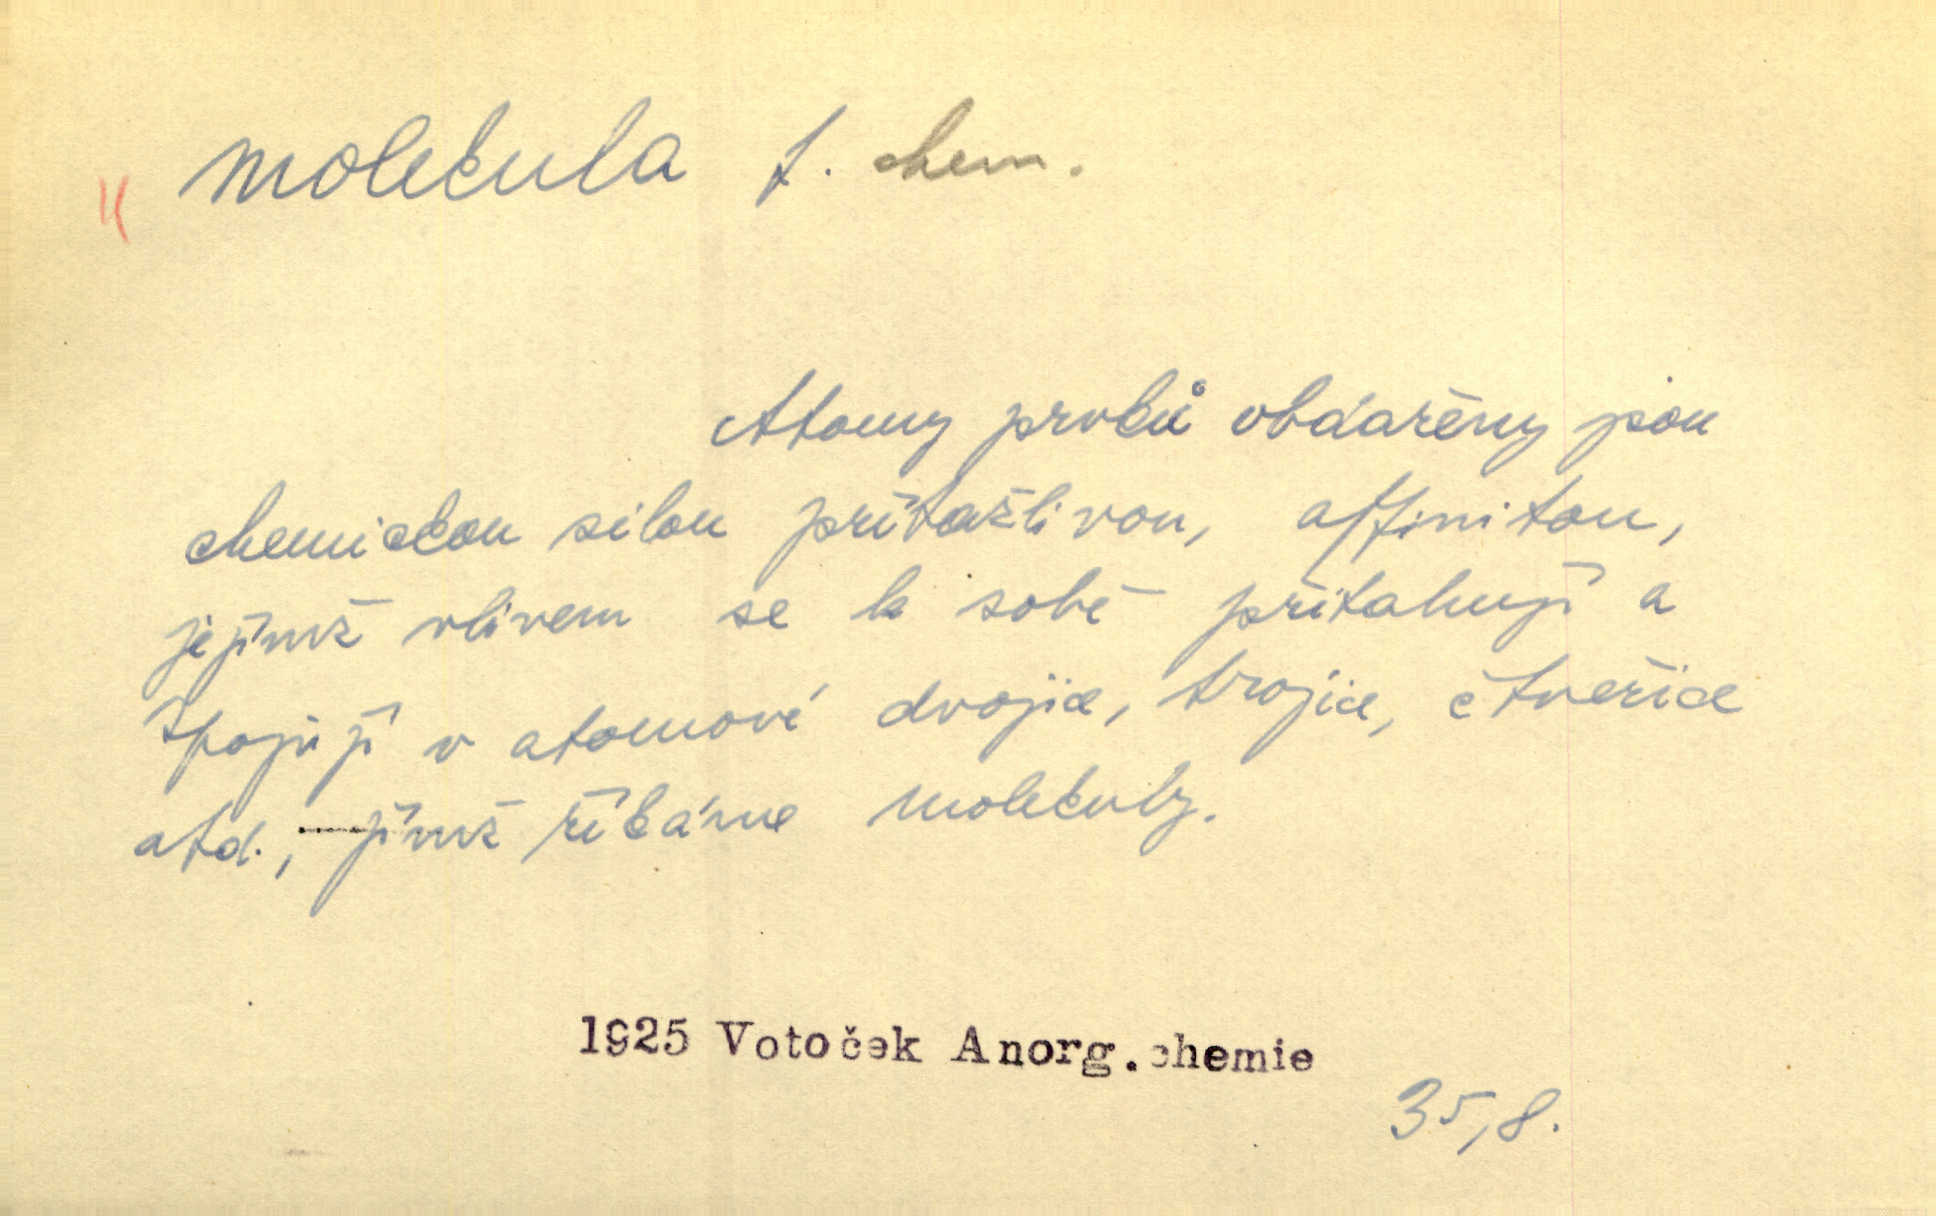 molekula f. chem.
Atomy prvků obdařeny jsou
chemickou silou přitažlivou, affinitou,
jejímž vlivem se k sobě přitahují a
spojují v atomové dvojice, trojice, čtveřice
atd., jimž říkáme molekuly.
1925 Votoček Anorg.chemie
35,8.